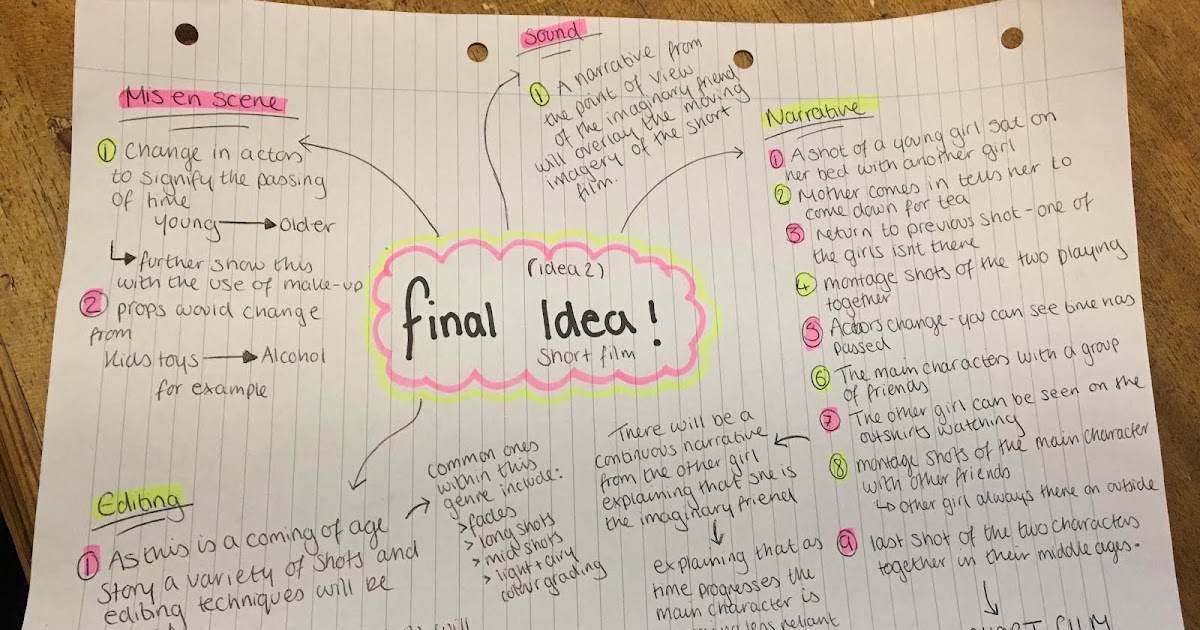 Mis en scene
① Change in actors
to signify the passing
of time
young → older
↳ further show this
with the use of make-up
② props would change
from
Kids toys → Alcohol
for example
Sound
① A narrative from
the point of view
of the imaginary friend
will overlay the moving
imagery of the short
film.
Narrative
① A shot of a young girl sat on
her bed with another girl
② Mother comes in tells her to
come down for tea
③ Return to previous shot - one of
the girls isnt there
④ montage shots of the two playing
together
⑤ Actors change - you can see time has
passed
⑥ The main characters with a group
of friends
⑦ The other girl can be seen on the
outskirts watching
⑧ montage shots of the main character
with other friends
↳ other girl always there on outside
⑨ last shot of the two characters
together in their middle ages.
(idea 2)
final Idea!
short film
There will be a
continuous narrative
from the other girl
explaining that she is
the imaginary friend
explaining that as
time progresses the
main character is
less reliant
Editing
① As this is a coming of age
story a variety of shots and
editing techniques will be
common ones
within this
genre include:
> fades
> long shots
> mid shots
> light + airy
colour grading
will
FILM